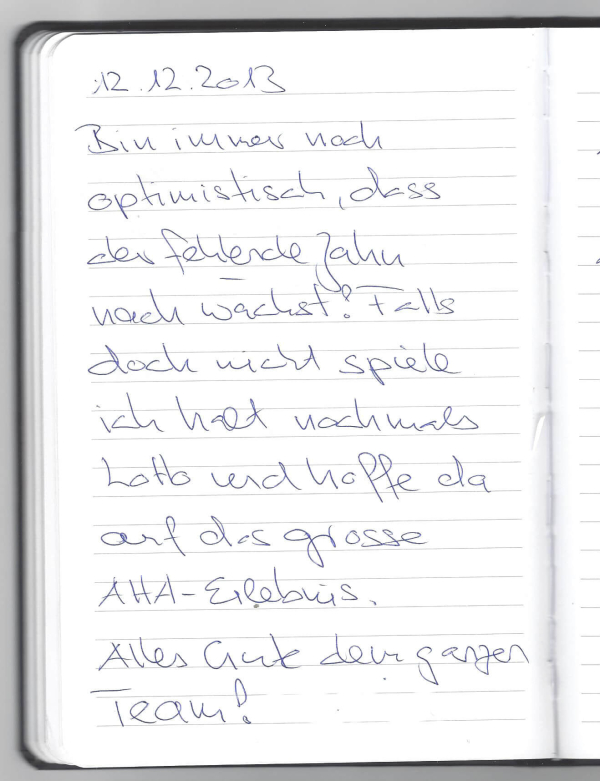 12.12.2013
Bin immer noch
optimistisch, dass
der fehlende Zahn
nach wächst! Falls
doch nicht spiele
ich halt nochmals
Lotto und hoffe da
auf das grosse
AHA-Erlebnis.
Alles Gute dem ganzen
Team!